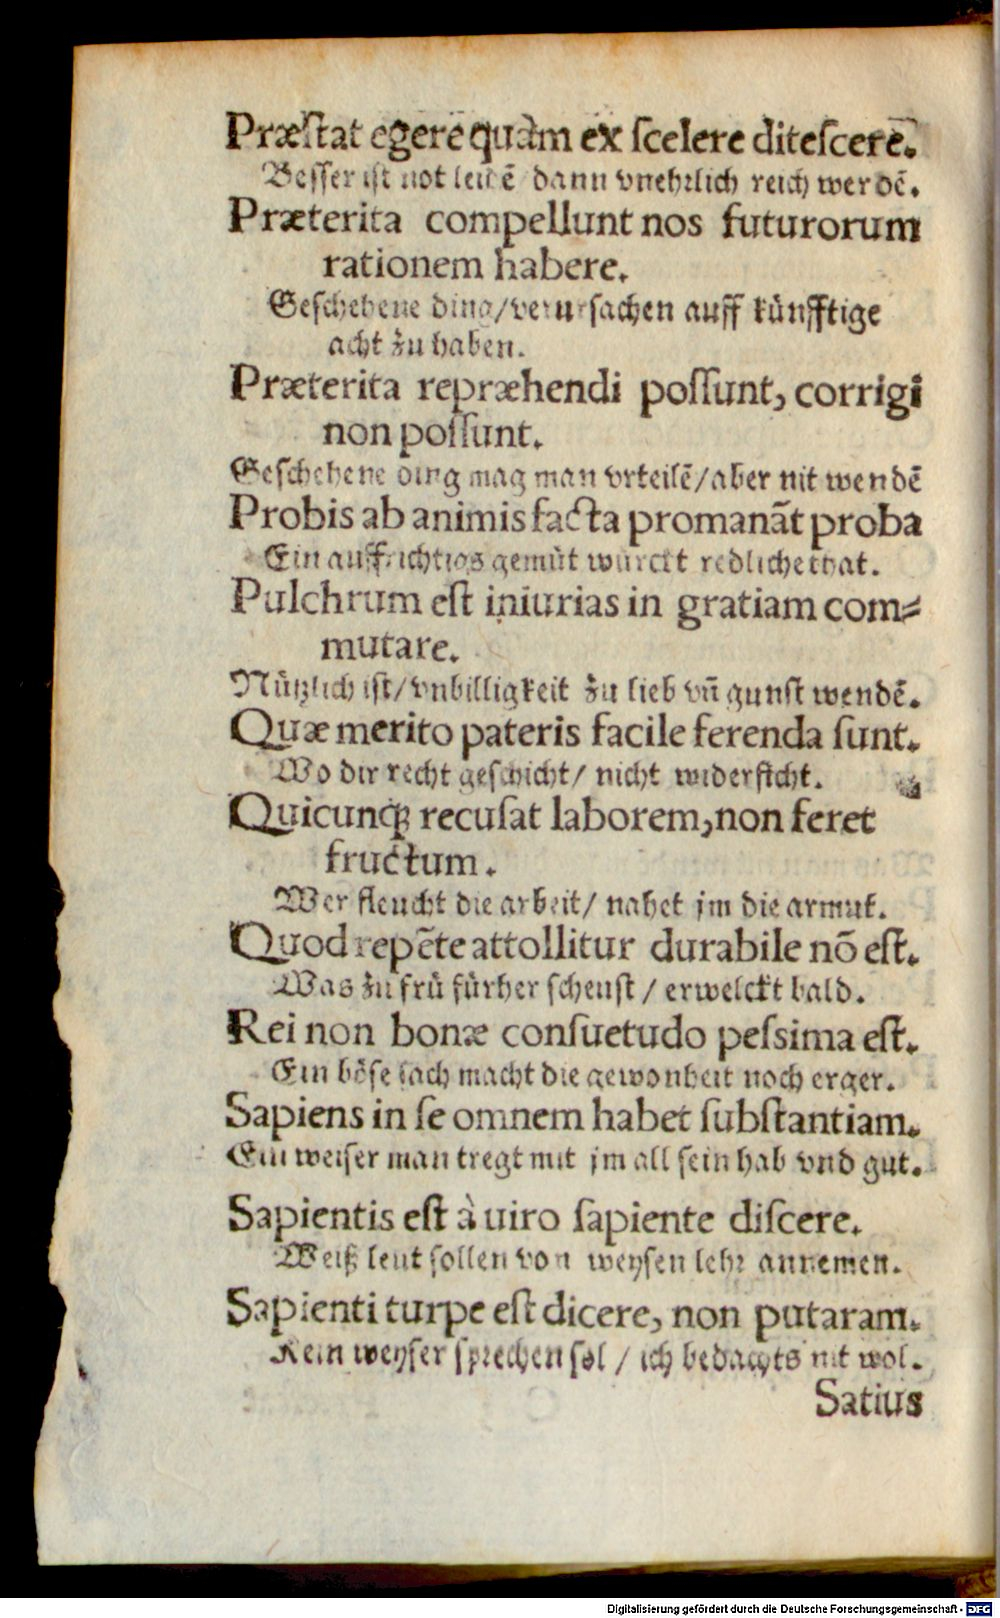 Præſtat egere quàm ex ſcelere diteſcere.
Beſſer iſt not leidē dann vnehrlich reich werdē.
Præterita compellunt nos futurorum
rationem habere.
Geſchehene ding/verurſachen auff künfftige
acht zu haben.
Præterita repræhendi poſſunt, corrigi
non poſſunt.
Geſchehene ding mag man vrteilē/aber nit wendē
Probis ab animis facta promanāt proba
Ein auffrichtigs gemüt würckt redliche that.
Pulchrum eſt iniurias in gratiam com⸗
mutare.
Nützlich iſt/vnbilligkeit zu lieb vñ gunſt wendē.
Quæ merito pateris facile ferenda ſunt.
Wo dir recht geſchicht/ nicht widerficht.
Quicunq; recuſat laborem, non feret
fructum.
Wer fleucht die arbeit/ nahet jm die armut.
Quod repēte attollitur durabile nō eſt.
Was zu frü fürher ſcheuſt / erwelckt bald.
Rei non bonæ conſuetudo peſsima eſt.
Ein böſe ſach macht die gewonheit noch erger.
Sapiens in ſe omnem habet ſubſtantiam.
Ein weiſer man tregt mit jm all ſein hab vnd gut.
Sapientis eſt à uiro ſapiente diſcere.
Weiß leut ſollen von weyſen lehr annemen.
Sapienti turpe eſt dicere, non putaram.
Kein weyſer ſprechen ſol / ich bedachts nit wol.
Satius
Digitalisierung gefördert durch die Deutsche Forschungsgemeinschaft - DFG